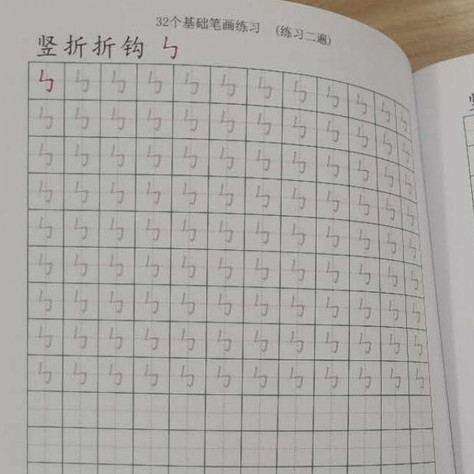 32个基础笔画练习 (练习二遍)
竖折折钩 ㇉
㇉ ㇉ ㇉ ㇉ ㇉ ㇉ ㇉ ㇉ ㇉ ㇉ ㇉ ㇉
㇉ ㇉ ㇉ ㇉ ㇉ ㇉ ㇉ ㇉ ㇉ ㇉ ㇉ ㇉
㇉ ㇉ ㇉ ㇉ ㇉ ㇉ ㇉ ㇉ ㇉ ㇉ ㇉ ㇉
㇉ ㇉ ㇉ ㇉ ㇉ ㇉ ㇉ ㇉ ㇉ ㇉ ㇉ ㇉
㇉ ㇉ ㇉ ㇉ ㇉ ㇉ ㇉ ㇉ ㇉ ㇉ ㇉ ㇉
㇉ ㇉ ㇉ ㇉ ㇉ ㇉ ㇉ ㇉ ㇉ ㇉ ㇉ ㇉
㇉ ㇉ ㇉ ㇉ ㇉ ㇉ ㇉ ㇉ ㇉ ㇉ ㇉ ㇉
㇉ ㇉ ㇉ ㇉ ㇉ ㇉ ㇉ ㇉ ㇉ ㇉ ㇉ ㇉
㇉ ㇉ ㇉ ㇉ ㇉ ㇉ ㇉ ㇉ ㇉ ㇉ ㇉ ㇉